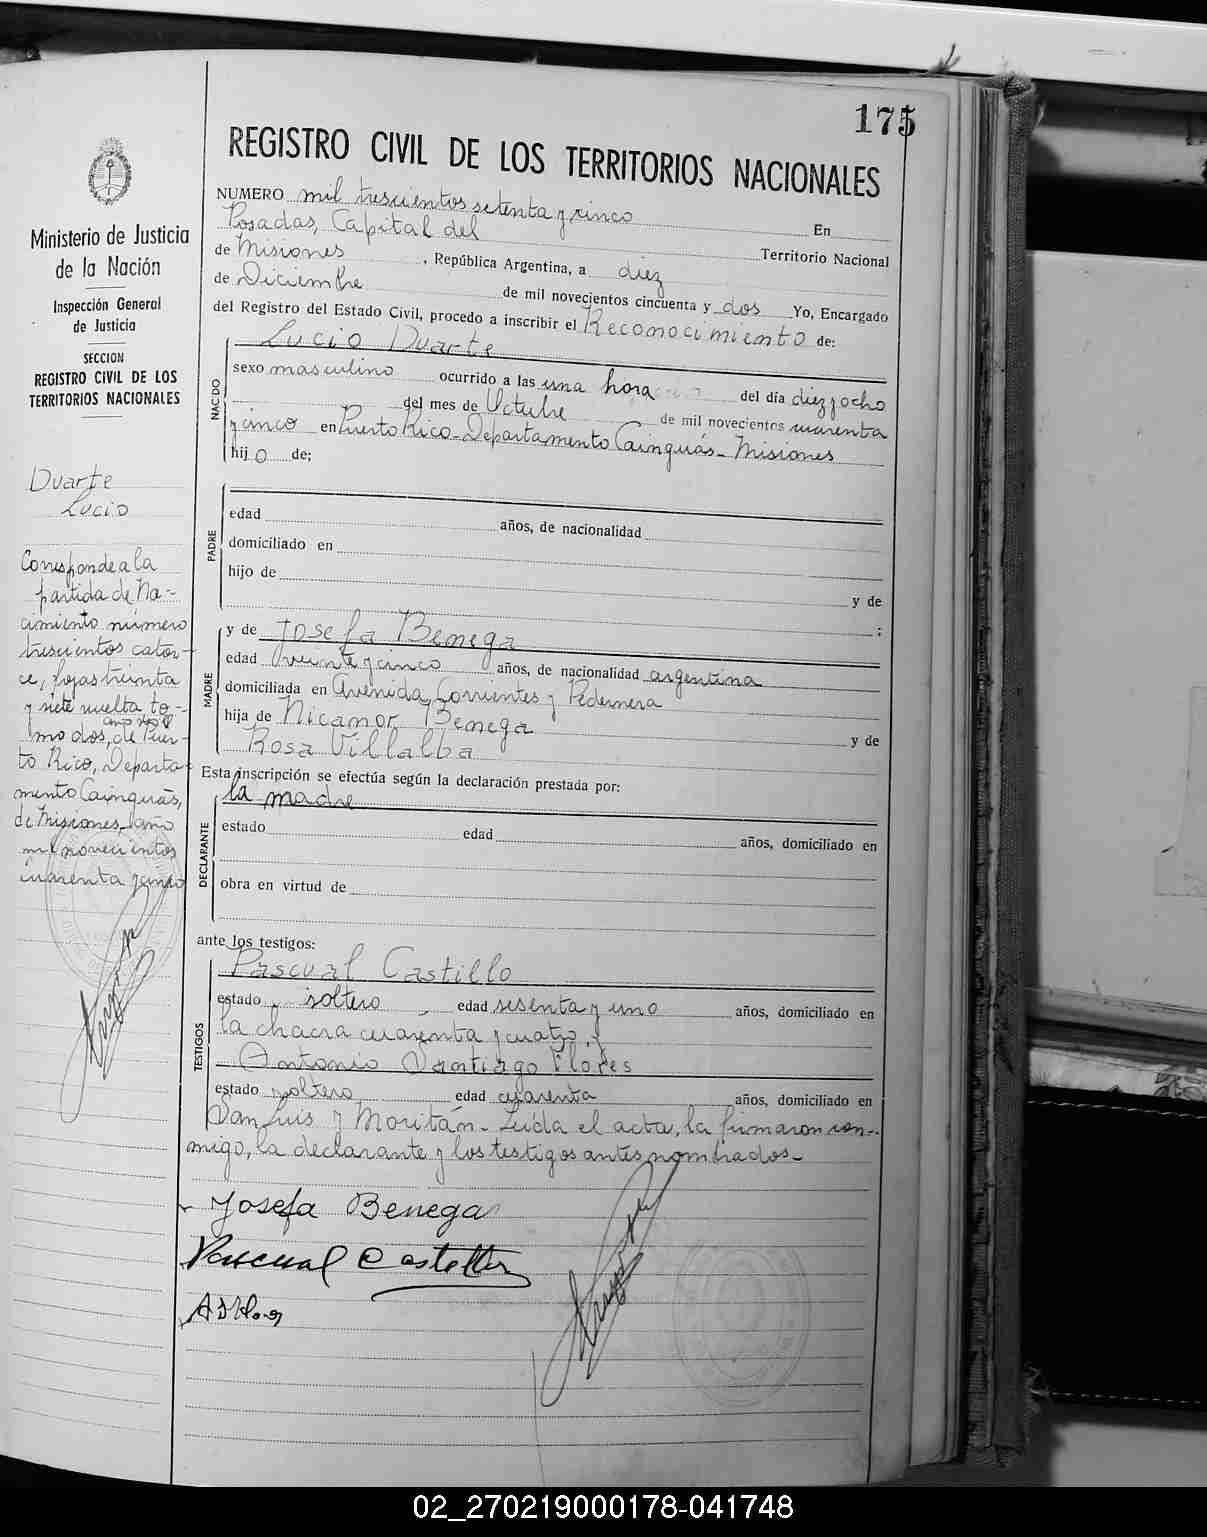 175
REGISTRO CIVIL DE LOS TERRITORIOS NACIONALES
NUMERO mil trescientos setenta y cinco En
Posadas, Capital del Territorio Nacional
de Misiones, República Argentina, a diez
de Diciembre de mil novecientos cincuenta y dos Yo, Encargado
del Registro del Estado Civil, procedo a inscribir el Reconocimiento de:
Lucio Duarte
NACIDO
sexo masculino ocurrido a las una hora del día diez y ocho
del mes de Octubre de mil novecientos cuarenta
y cinco en Puerto Rico - Departamento Cainguás - Misiones
hijo de;
PADRE
edad años, de nacionalidad
domiciliado en
hijo de
y de
:
MADRE
y de Josefa Benega
edad veinte y cinco años, de nacionalidad argentina
domiciliada en Avenida Corrientes y Pedernera
hija de Nicanor Benega y de
Rosa Villalba
Esta inscripción se efectúa según la declaración prestada por:
la madre
DECLARANTE
estado edad años, domiciliado en
obra en virtud de
ante los testigos:
TESTIGOS
Pascual Castillo
estado soltero edad sesenta y uno años, domiciliado en
la chacra cuarenta y cuatro, y
Antonio Santiago Flores
estado soltero edad cuarenta años, domiciliado en
San Luis y Moritán - Leída el acta, la firmaron con-
migo, la declarante y los testigos antes nombrados -
Josefa Benega
Pascual Castillo
Ministerio de Justicia
de la Nación
Inspección General
de Justicia
SECCION
REGISTRO CIVIL DE LOS
TERRITORIOS NACIONALES
Duarte
Lucio
Corresponde a la
partida de Na-
cimiento número
trescientos cator-
ce, fojas treinta
y siete vuelta to-
mo dos, de Puer-
to Rico, Departa-
mento Cainguás,
de Misiones, año
mil novecientos
cuarenta y cinco
02_270219000178-041748